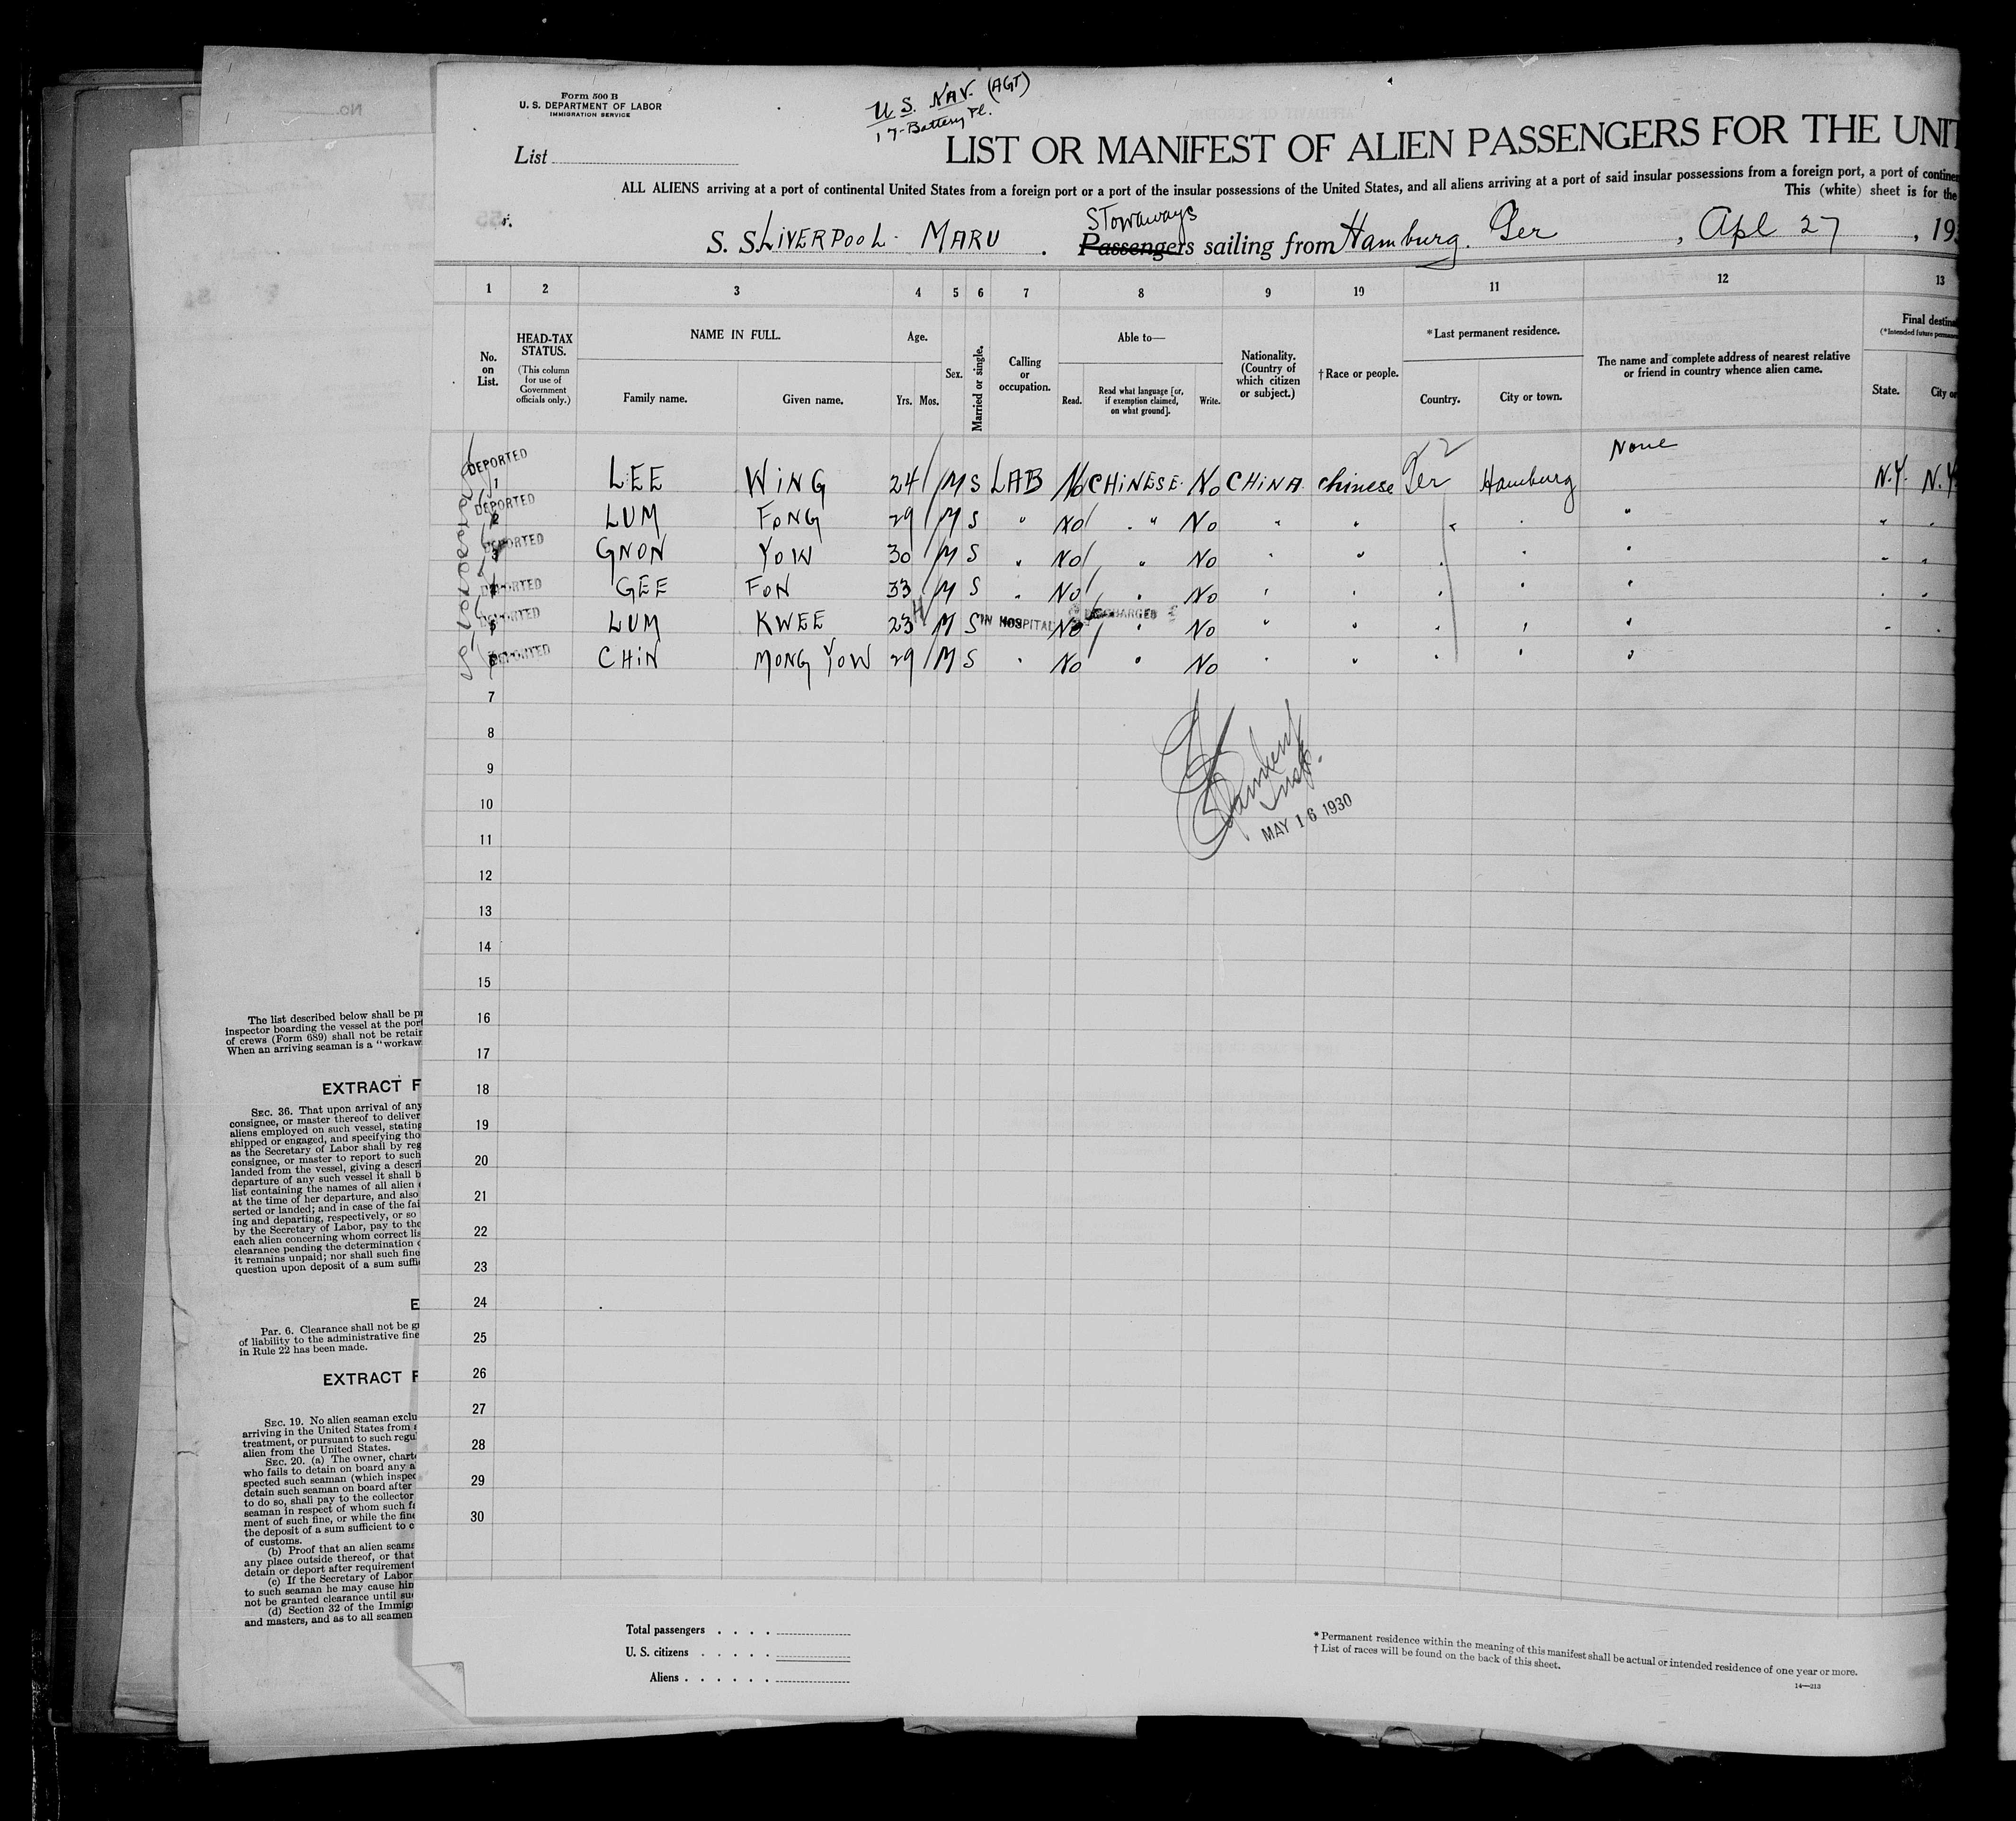 Form 500 B
U. S. DEPARTMENT OF LABOR
IMMIGRATION SERVICE
U. S. NAV. (AGT)
17-Battery Pl.
List
LIST OR MANIFEST OF ALIEN PASSENGERS FOR THE UNIT
ALL ALIENS arriving at a port of continental United States from a foreign port or a port of the insular possessions of the United States, and all aliens arriving at a port of said insular possessions from a foreign port, a port of continen
This (white) sheet is for the
Stowaways
S. S. LIVERPOOL MARU . Passengers sailing from Hamburg. Ger , Apl 27 , 193
1 2 3 4 5 6 7 8 9 10 11 12 13
No. on List.
HEAD-TAX STATUS.
(This column for use of Government officials only.)
NAME IN FULL.
Family name. Given name.
Age.
Yrs. Mos.
Sex.
Married or single.
Calling or occupation.
Able to—
Read. Read what language [or, if exemption claimed, on what ground]. Write.
Nationality. (Country of which citizen or subject.)
†Race or people.
*Last permanent residence.
Country. City or town.
The name and complete address of nearest relative or friend in country whence alien came.
Final destina
(*Intended future permanen
State. City or
DEPORTED 1 LEE WING 24 M S LAB No CHINESE. No CHINA. Chinese Ger Hamburg None N.Y. N.Y
DEPORTED 2 LUM FONG 29 M S " No " No " " " " " " "
DEPORTED 3 GNON YOW 30 M S " No " No " " " " " " "
DEPORTED 4 GEE FON 33 M S " No " No " " " " " " "
DEPORTED 5 LUM KWEE 23 M S IN HOSPITAL No DISCHARGED " No " " " " " " "
DEPORTED 6 CHIN MONG YOW 29 M S " No " No " " " " "
7
8
9
10
11
Insp.
MAY 16 1930
12
13
14
15
16
17
18
19
20
21
22
23
24
25
26
27
28
29
30
Total passengers . . . .
U. S. citizens . . . . .
Aliens . . . . . .
* Permanent residence within the meaning of this manifest shall be actual or intended residence of one year or more.
† List of races will be found on the back of this sheet.
14—213
No.
The list described below shall be p
inspector boarding the vessel at the port
of crews (Form 689) shall not be retain
When an arriving seaman is a "workaw
EXTRACT F
SEC. 36. That upon arrival of any
consignee, or master thereof to deliver
aliens employed on such vessel, stating
shipped or engaged, and specifying tho
as the Secretary of Labor shall by reg
consignee, or master to report to such
landed from the vessel, giving a descri
departure of any such vessel it shall b
list containing the names of all alien
at the time of her departure, and also
serted or landed; and in case of the fai
ing and departing, respectively, or so
by the Secretary of Labor, pay to the
each alien concerning whom correct lis
clearance pending the determination o
it remains unpaid; nor shall such fine
question upon deposit of a sum suffi
E
Par. 6. Clearance shall not be g
of liability to the administrative fine
in Rule 22 has been made.
EXTRACT F
SEC. 19. No alien seaman exclu
arriving in the United States from
treatment, or pursuant to such regu
alien from the United States.
SEC. 20. (a) The owner, chart
who fails to detain on board any a
spected such seaman (which inspec
detain such seaman on board after
to do so, shall pay to the collector
seaman in respect of whom such f
ment of such fine, or while the fine
the deposit of a sum sufficient to c
of customs.
(b) Proof that an alien seama
any place outside thereof, or that
detain or deport after requirement
(c) If the Secretary of Labor
to such seaman he may cause him
not be granted clearance until su
(d) Section 32 of the Immig
and masters, and as to all seamen